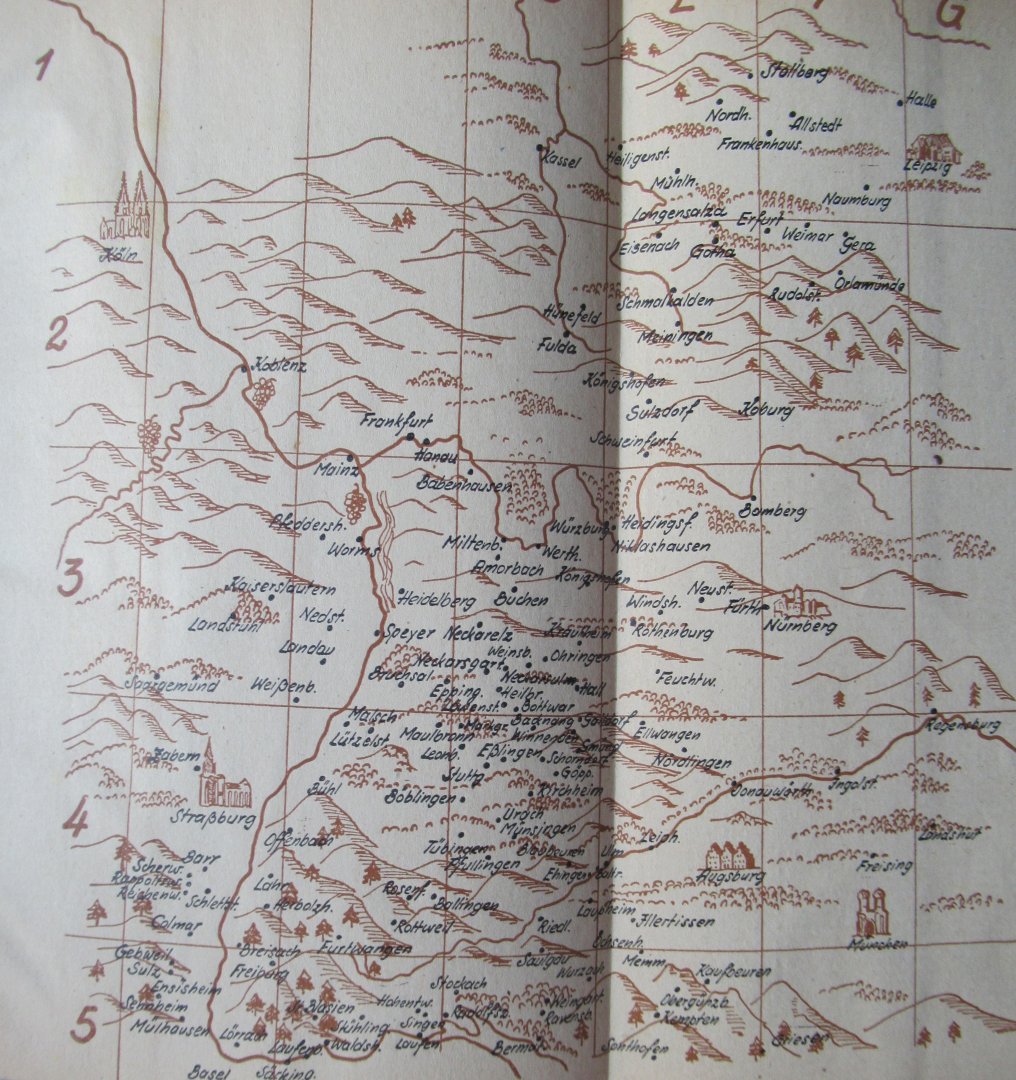 G
1
Stollberg
Halle
Nordh.
Allstedt
Frankenhaus.
Kassel
Heiligenst.
Leipzig
Mühlh.
Naumburg
Langensalza
Erfurt
Weimar
Gera
Köln
Eisenach
Gotha
Schmalkalden
Rudolst.
Orlamünde
Hünefeld
2
Fulda
Meiningen
Koblenz
Königshofen
Sulzdorf
Koburg
Frankfurt
Schweinfurt
Hanau
Mainz
Babenhausen
Bamberg
Pfeddersh.
Würzburg
Heidingsf.
Worms
Miltenb.
Werth.
Niklashausen
3
Amorbach
Königshofen
Kaiserslautern
Heidelberg
Buchen
Neust.
Windsh.
Fürth
Landstuhl
Nedst.
Nürnberg
Speyer
Neckarelz
Krautheim
Rothenburg
Landau
Weinsb.
Öhringen
Neckarsgart.
Neckarsulm
Bruchsal
Feuchtw.
Saargemünd
Weißenb.
Epping.
Heilbr.
Hall
Lauffenst.
Bottwar
Malsch
Backnang
Gaildorf
Regensburg
Lützelst.
Maulbronn
Winnenden
Ellwangen
Zabern
Leonb.
Eßlingen
Schorndorf
Gmünd
Nördlingen
Stuttg.
Göpp.
Bühl
Böblingen
Kirchheim
Donauwörth
Ingolst.
Straßburg
4
Urach
Münsingen
Landshut
Offenbach
Leiph.
Tübingen
Blaubeuren
Ulm
Barr
Pfullingen
Scherw.
Ehingen
Baltr.
Augsburg
Freising
Rappoltsw.
Reichenw.
Lahr
Rosenf.
Schlettst.
Herbolzh.
Balingen
Laupheim
Colmar
Rottweil
Riedl.
Illertissen
München
Gebweil.
Breisach
Furtwangen
Ochsenh.
Sulz
Freiburg
Saulgau
Wurzach
Memm.
Kaufbeuren
Ensisheim
Stockach
Sennheim
St. Blasien
Hohentw.
Weingart.
Obergünzb.
5
Mülhausen
Stühling.
Singen
Radolfsz.
Ravensb.
Kempten
Lörrach
Laufenb.
Waldsh.
Laufen.
Bermat.
Sonthofen
Basel
Säcking.